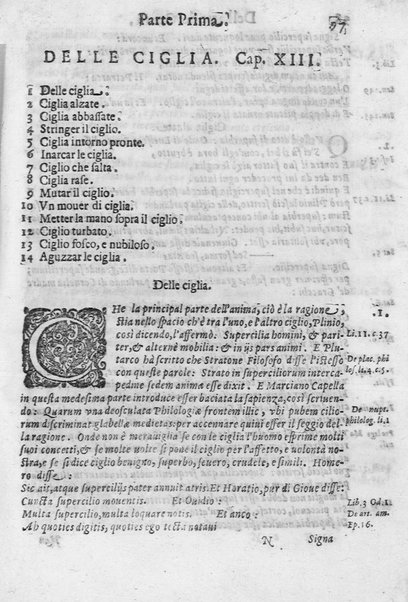 Parte Prima. 97.
DELLE CIGLIA. Cap. XIII.
1 Delle ciglia.
2 Ciglia alzate.
3 Ciglia abbassate.
4 Stringer il ciglio.
5 Ciglia intorno pronte.
6 Inarcar le ciglia.
7 Ciglio che salta.
8 Ciglia rase.
9 Mutar il ciglio.
10 Vn mouer di ciglia.
11 Metter la mano sopra il ciglio.
12 Ciglio turbato.
13 Ciglio fosco, e nubiloso.
14 Aguzzar le ciglia.
Delle ciglia.
CHe la principal parte dell'anima, ciò è la ragione 1.
stia nello spacio ch'è tra l'uno, e l'altro ciglio, Plinio, Li. 11. c. 37
così dicendo, l'affermò. Supercilia homini, & pari-
ter, & alternè mobilia: & in ijs pars animi. E Plu-
tarco hà scritto che Stratone Filosofo disse l'istesso De plac. phi
con queste parole: Strato in superciliorum interca- los. li. 4. c. 5.
pedine sedem animæ esse dixit. E Marciano Capella
in questa medesima parte introduce esser baciata la sapienza, così scriuen-
do: Quarum vna deosculata Philologiæ frontem illic, vbi pubem cilio- De nupt.
rum discriminat glabella medietas: per accennare quiui esser il seggio del philolog. li. 1
la ragione. Onde non è merauiglia se con le ciglia l'huomo esprime molti
suoi concetti, & se molte uolte si pone il ciglio per l'affetto, e uolontà no-
stra, e se si dice ciglio benigno, superbo, seuero, crudele, e simili. Home-
ro disse
Sic ait, atque supercilijs pater annuit atris. Et Horatio, par di Gioue disse:
Cuncta supercilio mouentis. Et Ouidio: Lib. 3 Od. 1.
Multa supercilio, multa loquare notis. Et anco: De art. am.
Ah quoties digitis, quoties ego tecta notaui Ep. 16.
N Signa